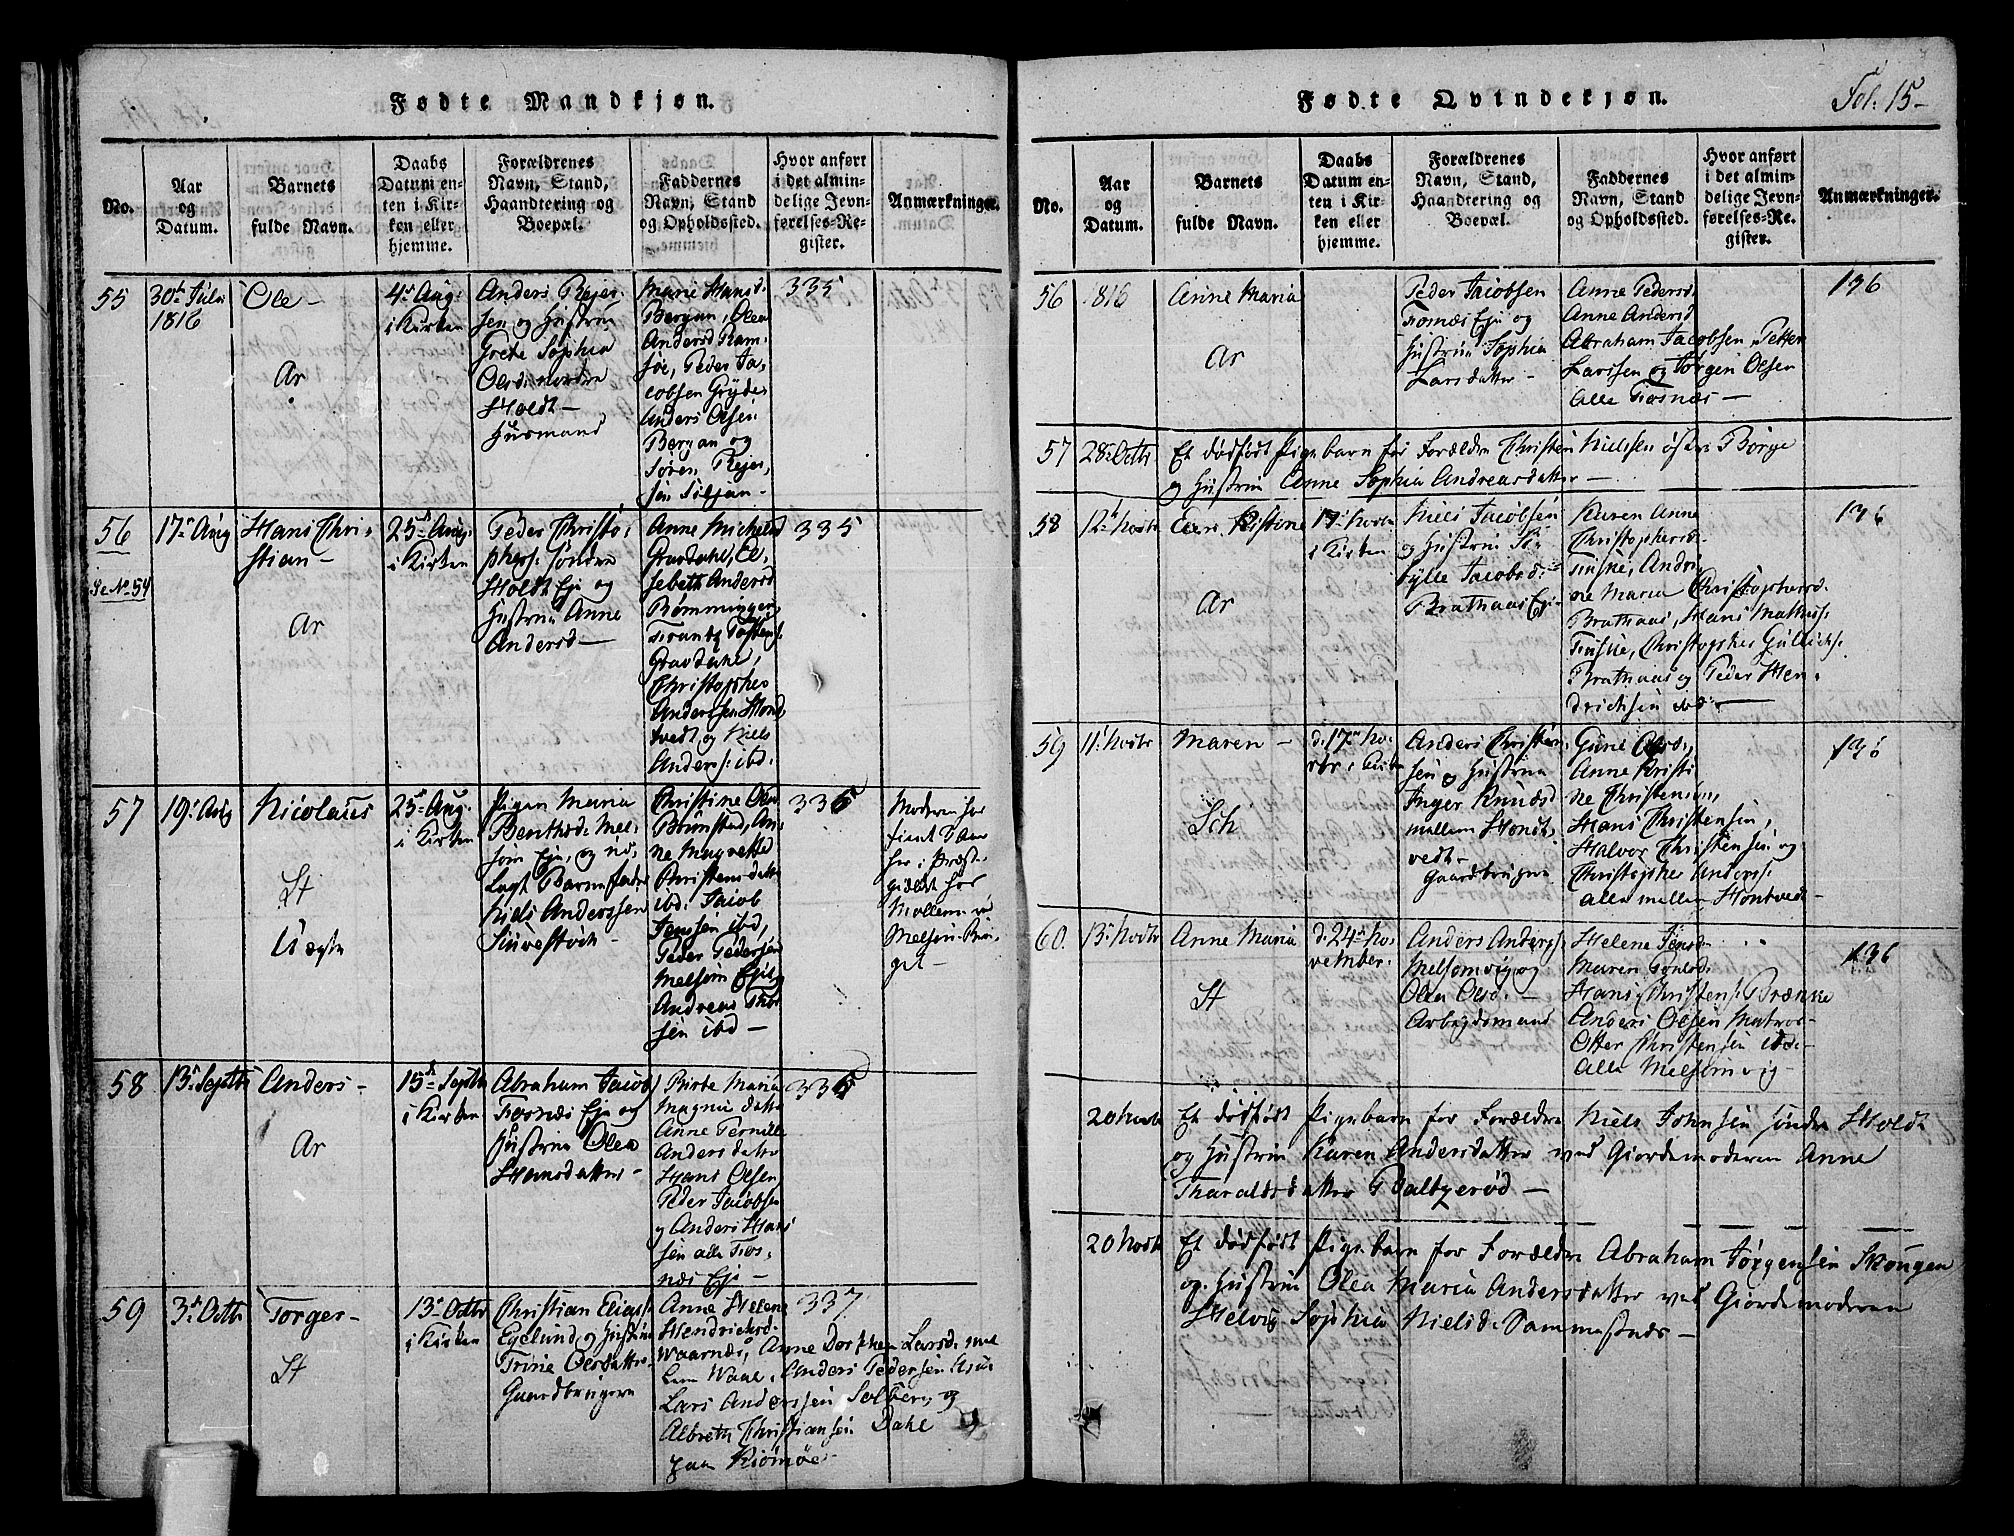 Fødte Mandkjøn.
No.
Aar
og
Datum.
Barnets
fulde Navn.
Daabs
Datum en-
ten i Kir-
ken eller
hjemme.
Forældrenes
Navn, Stand,
Haandtering og
Boepæl.
Faddernes
Navn, Stand
og Opholdssted.
Hvor anført
i det almin-
delige Jevn-
førelses-Re-
gister.
Anmærkninger.
55
30t Julii
1816
Ole -
Ar
4de Aug:
i Kirken
Anders Rejer-
sen og Hustrue
Grete Sophia
Olsd: nordre
Holdt -
Huusmand
Marie Hansd:
Bergan, Olea
Andersd Ram-
søe, Peder Ja-
cobsen Gryde
Anders Olsen
Bergan og
Søren Rejer-
sen Siljan -
335
56
Se No 54
17de Aug
Hans Chri-
stian -
Ar
25de Aug:
i Kirken
Peder Christo-
phers: søndre
Holdt Eje og
Hustrue Anne
Andersd -
Anne Michelsd
Gravdahl, El-
sebeth Andersd
Rømminggen
Frantz Tostens:
Gravdahl,
Christopher
Anderssen Hond-
vedt og Niels
Anders: ibd.
335
57
19de Aug
Nicolaus
St
Uægte
25de Aug.
i Kirken
Pigen Maria
Benthsd: Mel-
som Eje, og ud-
lagt Barnefader
Niels Anderssen
Christine Ols
Brunstad, An-
ne Margrethe
Christensdatter
ibd: Jacob
Jenssen ibd,
Peder Pedersen
Melsom Eje og
Andreas Thor-
sen ibd -
336
Moderen har
tient
her i Præste-
gieldet hos
Melsom
58
13de Septbr
Anders -
Ar
15de Septbr
i Kirken
Abraham Jacobs
Fosnæs Eje og
Hustrue Olea
Hansdatter -
Birte Maria
Magnidatter
Anne Pernille
Andersdatter
Hans Olsen
Peder Jacobsen
og Anders Han-
sen alle Fos-
næs Eje -
336
59
3de Octbr
Torger -
St
13de Octbr
i Kirken
Christian Elias:
Egelund og Hustrue
Trine Olesdatter -
Gaardbrugere
Anne Helene
Hendrichsd:
Waarnæs, Anne Dorthea Larsd: mel-
lem Waae, Anders Pedersen
Lars Anderssen Solberg og
Albreth Christiansen Dahl
paa Niømøe -
337
Fødte Qvindekjøn.
Fol: 15-
No.
Aar
og
Datum.
Barnets
fulde Navn.
Daabs
Datum en-
ten i Kir-
ken eller
hjemme.
Forældrenes
Navn, Stand,
Haandtering og
Boepæl.
Faddernes
Navn, Stand
og Opholdssted.
Hvor anført
i det almin-
delige Jevn-
førelses-Re-
gister.
Anmærkninger.
56
816
Anne Maria
Ar
Peder Jacobsen
Fosnæs Eje og
Hustrue Sophia
Larsdatter -
Anne Pedersd.
Anne Andersd
Abraham Jacobsen, Petter
Larssen og Jørgen Olsen
alle Fosnæs -
136
57
28de Octbr
Et dødfødt Pigebarn for Forældre Christen Nielssen østre Børge
og Hustrue Anne Sophia Andreasdatter -
58
12te Novbr
Kistine
Ar
17de Novbr
i Kirken
Niels Jacobsen
og Hustrue Si-
bylle Jacobsd:
Brathaas Eje
Karen Anne
Christophersd.
Fuske, Andri-
ne Maria Christophersd.
Brathaas, Hans Mathis:
Fuske, Christopher Gullichs:
Brathaas og Peder Hen-
drichsen ibd: -
136
59
11te Novbr
Maren -
Sch
d: 17de No-
vbr i Kirken
Anders Christen-
sen og Hustrue
Inger Knudsd
mellem Hondt-
vedt -
Gaardbrugere
Gune Olsd,
Anne Kristi-
ne Christensen,
Hans Christensen,
Halvor Christensen og
Christopher Anders:
alle mellem Hontvedt -
136
60.
13de Novbr
Anne Maria
St
d: 24de No-
vember.
Anders Anders:
Melsomvig og
Olea Olsd. -
Arbeydsmand
Helene Jensd
Maren Povelsd:
Hans Christens: Brænne
Anders Olsen Matros
Otter Christensen ibd -
alle Melsomvig -
136
20 Novbr
Et dødfødt Pigebarn for Forældre Niels Johnsen søndre Holdt
og Hustrue Karen Andersdatter ved Giordemoderen Anne
Tharaldsdatter Baltzerød -
20 Novbr
Et dødfødt Pigebarn for Forældre Abraham Jørgensen Skougen
og Hustrue Olea Maria Andersdatter ved Giordemoderen
Helvig Sophia Nielsd. Dammestad -